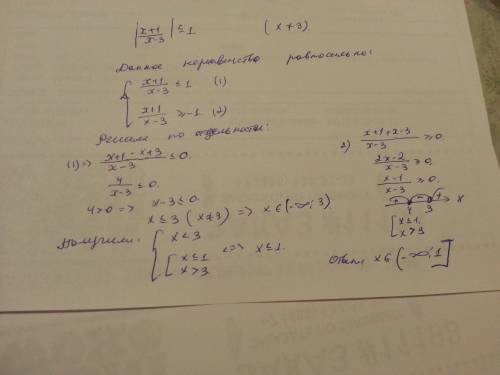 |x+1/x-3| ≤ 1 (x≠3).
Данное неравенство равносильно:
{ x+1/x-3 ≤ 1 (1)
x+1/x-3 ≥ -1 (2)
Решим по отдельности:
(1) => x+1-x+3/x-3 ≤ 0.
4/x-3 ≤ 0.
4>0 => x-3 ≤ 0.
x ≤ 3 (x≠3) => x∈(-∞; 3)
2) x+1+x-3/x-3 ≥ 0.
2x-2/x-3 ≥ 0,
x-1/x-3 ≥ 0.
+ - + x
1 3
[ x≤1,
x>3
Получим: { x<3
[ x≤1
x>3 <=> x≤1.
Ответ: x∈(-∞; 1]